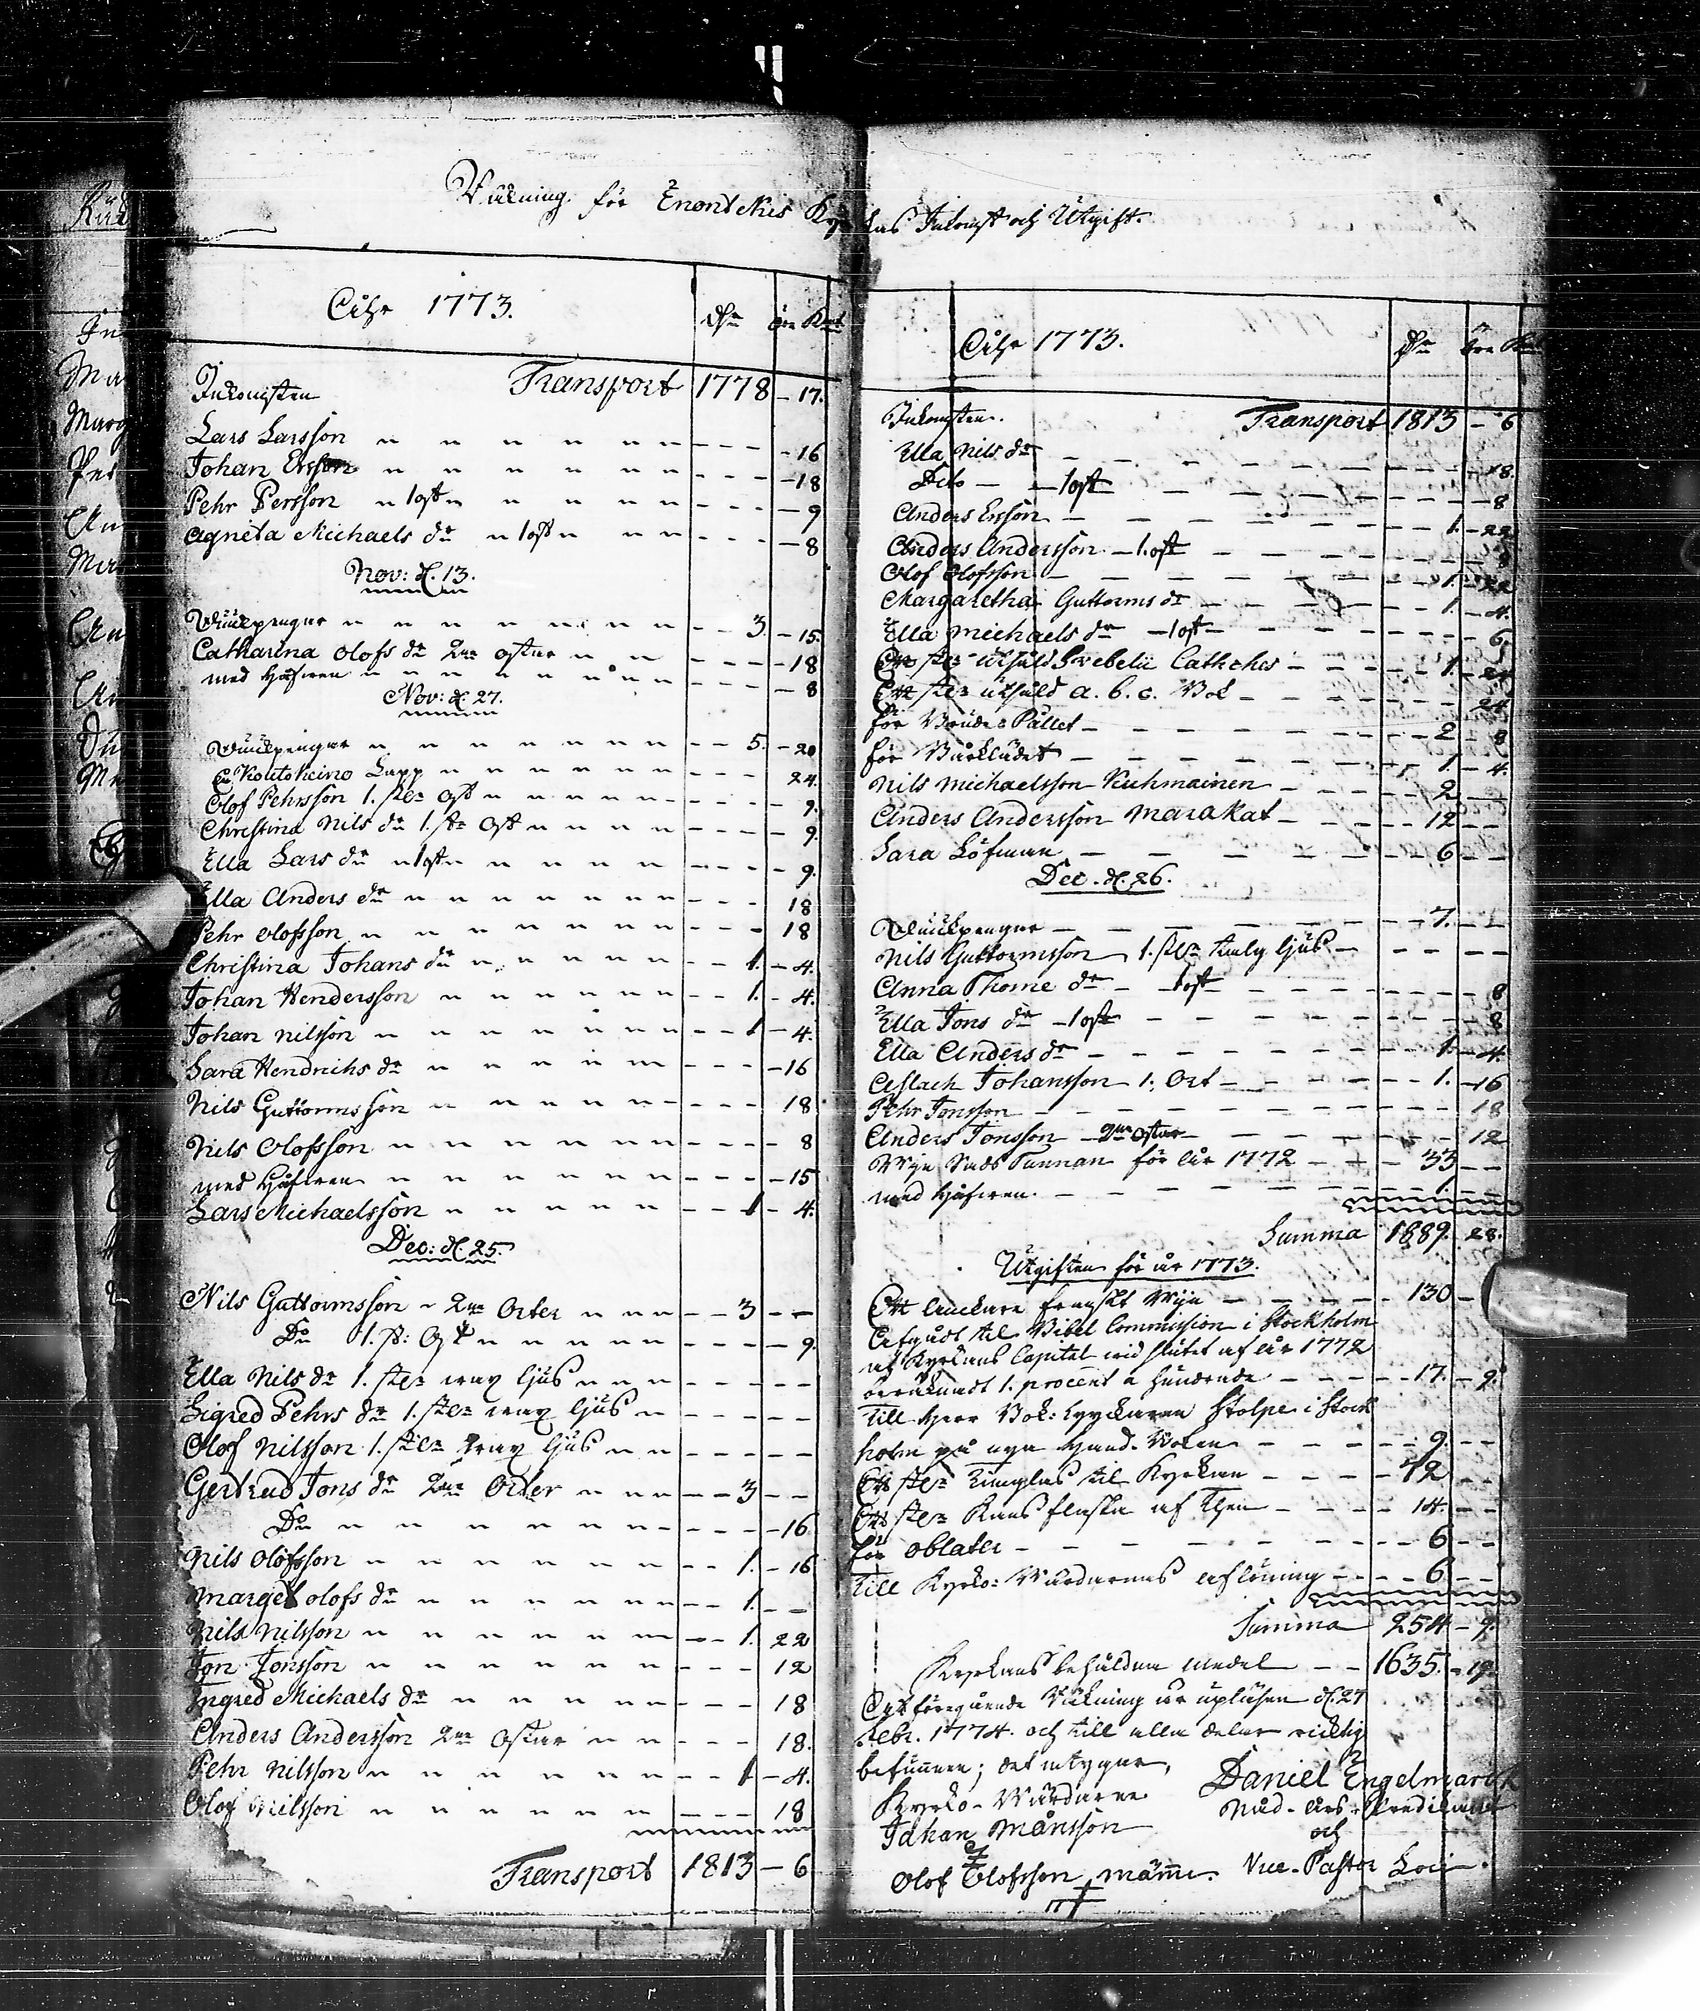 Räkning för Enontekis Kyrkas Inkomst och Utgift.
Åhr 1773. öre Kmt
Inkomsten Transport 1778 - 17.
Lars Larsson - 16
Johan Ersson - 18
Pehr Persson 1 ost - 9
Agneta Michaels dr 1 ost - 8
Nov: d. 13.
3 - 15.
Catharina Olofs dr 2ne ostar - 18
med Håfwen - 8
Nov: d. 27.
5. - 20
En Koutokeino Lapp 24.
Olof Pehrsson 1. st. ost 9.
Christina Nils dr 1. st. ost 9
Ella Lars dr 1 ost 9.
Ella Anders dr 18
Pehr Olofsson 18
Christina Johans dr 1. - 4.
Johan Hendersson 1. - 4.
Johan Nilsson 1 - 4.
Sara Hendrichs dr - 16
Nils Guttormsson 18
Nils Olofsson 8
med Håfwen - 15
Lars Michaelsson 1 - 4.
Dec: d. 25.
Nils Guttormsson 2ne Orter 3
Do 1. st: Ost 9.
Ella Nils dr 1. st. wax ljus
Sigred Pehrs dr 1. st. wax ljus
Olof Nilsson 1. st. wax ljus
Gertrud Jons dr 2ne Orter 3
Do - 16
Nils Olofsson 1. - 16
Marget Olofs dr 1.
Nils Nilsson 1. 22
Jon Jonsson 12
Ingred Michaels dr 18
Anders Andersson 2ne Ostar 18.
Pehr Nilsson 1 - 4.
Olof Nilsson 18
Transport 1813 - 6
Åhr 1773.
Inkomsten. Transport 1813 - 6
Ella Nils dr - 18.
Dito - 1 ost - 8
Anders Ersson 1. - 22
Anders Andersson 1. ost 8
Olof Olofsson 1. - 22
Margaretha Guttorms dr 1. - 4.
Ella Michaels dr 1 ost 6.
Ett st. utsåld Svebelii Cateches 1.
Ett st. utsåld a. b. c. Bok 24.
för Brude Pållet 2 - 8
för Bårklädet 1 - 4.
Nils Michaelsson Kuhmainen 2
Anders Andersson Marakat 12
Sara Löfman 6
Dec. d. 26.
7.
Nils Guttormsson 1. st. talg ljus
Anna Thome dr 1 ost 8
Ella Jons dr 1 ost 8
Ella Anders dr 1. - 4.
Aslach Johansson 1. Ort 1. - 16
Pehr Jonsson 18
Anders Jonsson 2ne ostar 12
Tunnan för år 1772 33
med Håfwen. 1.
Summa 1889. 28.
Utgiften för år 1773.
Ett Anckare franskt Wijn 130
Afgådt til Bibel Commission i Stockholm
af Kyrkans Capital wid slutet af år 1772
beräknadt 1. procent a hundrade 17. - 9.
Till Herr Bok: tryckaren Stolpe i Stock
holm på nya Hand-Boken 9.
Ett st. timglas til Kyrkan 12
Ett st. Kans flaska af Tenn 14.
för oblater 6
Till Kyrko: Wärdarnas aflöning 6
Summa 254 - 9.
Kyrkans behåldna medel 1635. - 19.
At föregående Räkning är upläsen d. 27
Febr. 1774. och till alla delar richtig
befunnen; det intygar,
Kyrko-Wärdarne
Johan Månsson
Olof Olofsson Mämm.
Daniel Engelmarck
Nåd-års-Predikant
och
Vice-Pastor Loci.